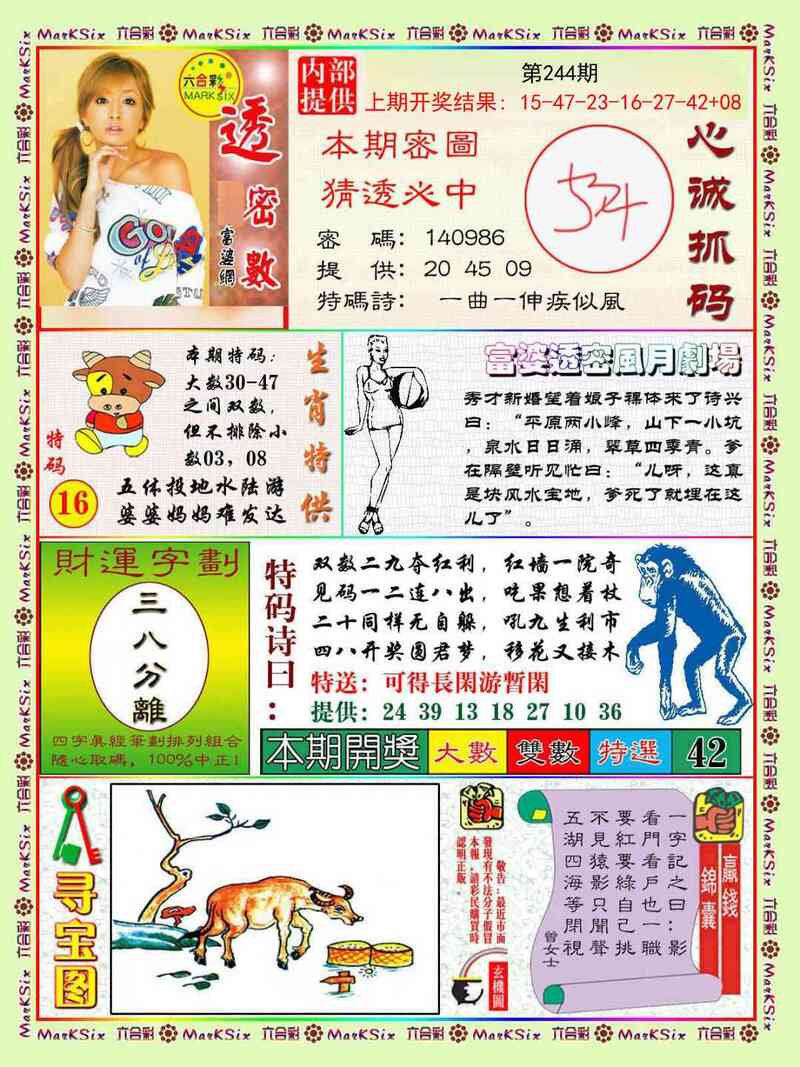 MarKSix 六合彩 MarKSix 六合彩 MarKSix 六合彩 MarKSix 六合彩 MarKSix 六合彩
六合彩
MARK SIX
透密數
富婆網
内部
提供
第244期
上期开奖结果：15-47-23-16-27-42+08
本期密圖
猜透必中
密 碼：140986
提 供：20 45 09
特碼詩： 一曲一伸疾似風
534
心诚抓码
本期特码：
大数30-47
之间双数，
但不排除小
数03，08
特码
16
五体投地水陆游
婆婆妈妈难发达
生肖特供
富婆透密風月劇場
秀才新婚望着娘子裸体来了诗兴
曰：“平原两小峰，山下一小坑
，泉水日日涌，翠草四季青。爹
在隔壁听见忙曰：“儿呀，这真
是块风水宝地，爹死了就埋在这
儿了”。
財運字劃
三八分離
四字真經筆劃排列組合
隨心取碼，100%中正！
特码诗曰：
双数二九夺红利，红墙一院奇
见码一二连八出，吃果想着杖
二十同样无自躲，吼九生利市
四八开奖圆君梦，移花又接木
特送：可得長閑游暫閑
提供：24 39 13 18 27 10 36
本期開獎 大數 雙數 特選 42
寻宝图
敬告：最近市面
發現有不法分子假冒
本報，請彩民購買時
認明正版。
玄機圖
贏錢
錦囊
一字記之曰：影
看門看戶也一職
要紅要綠自己挑
不見猿影只聞聲
五湖四海等閑視
曾女士
六合彩 MarKSix 六合彩 MarKSix 六合彩 MarKSix 六合彩 MarKSix 六合彩 MarKSix